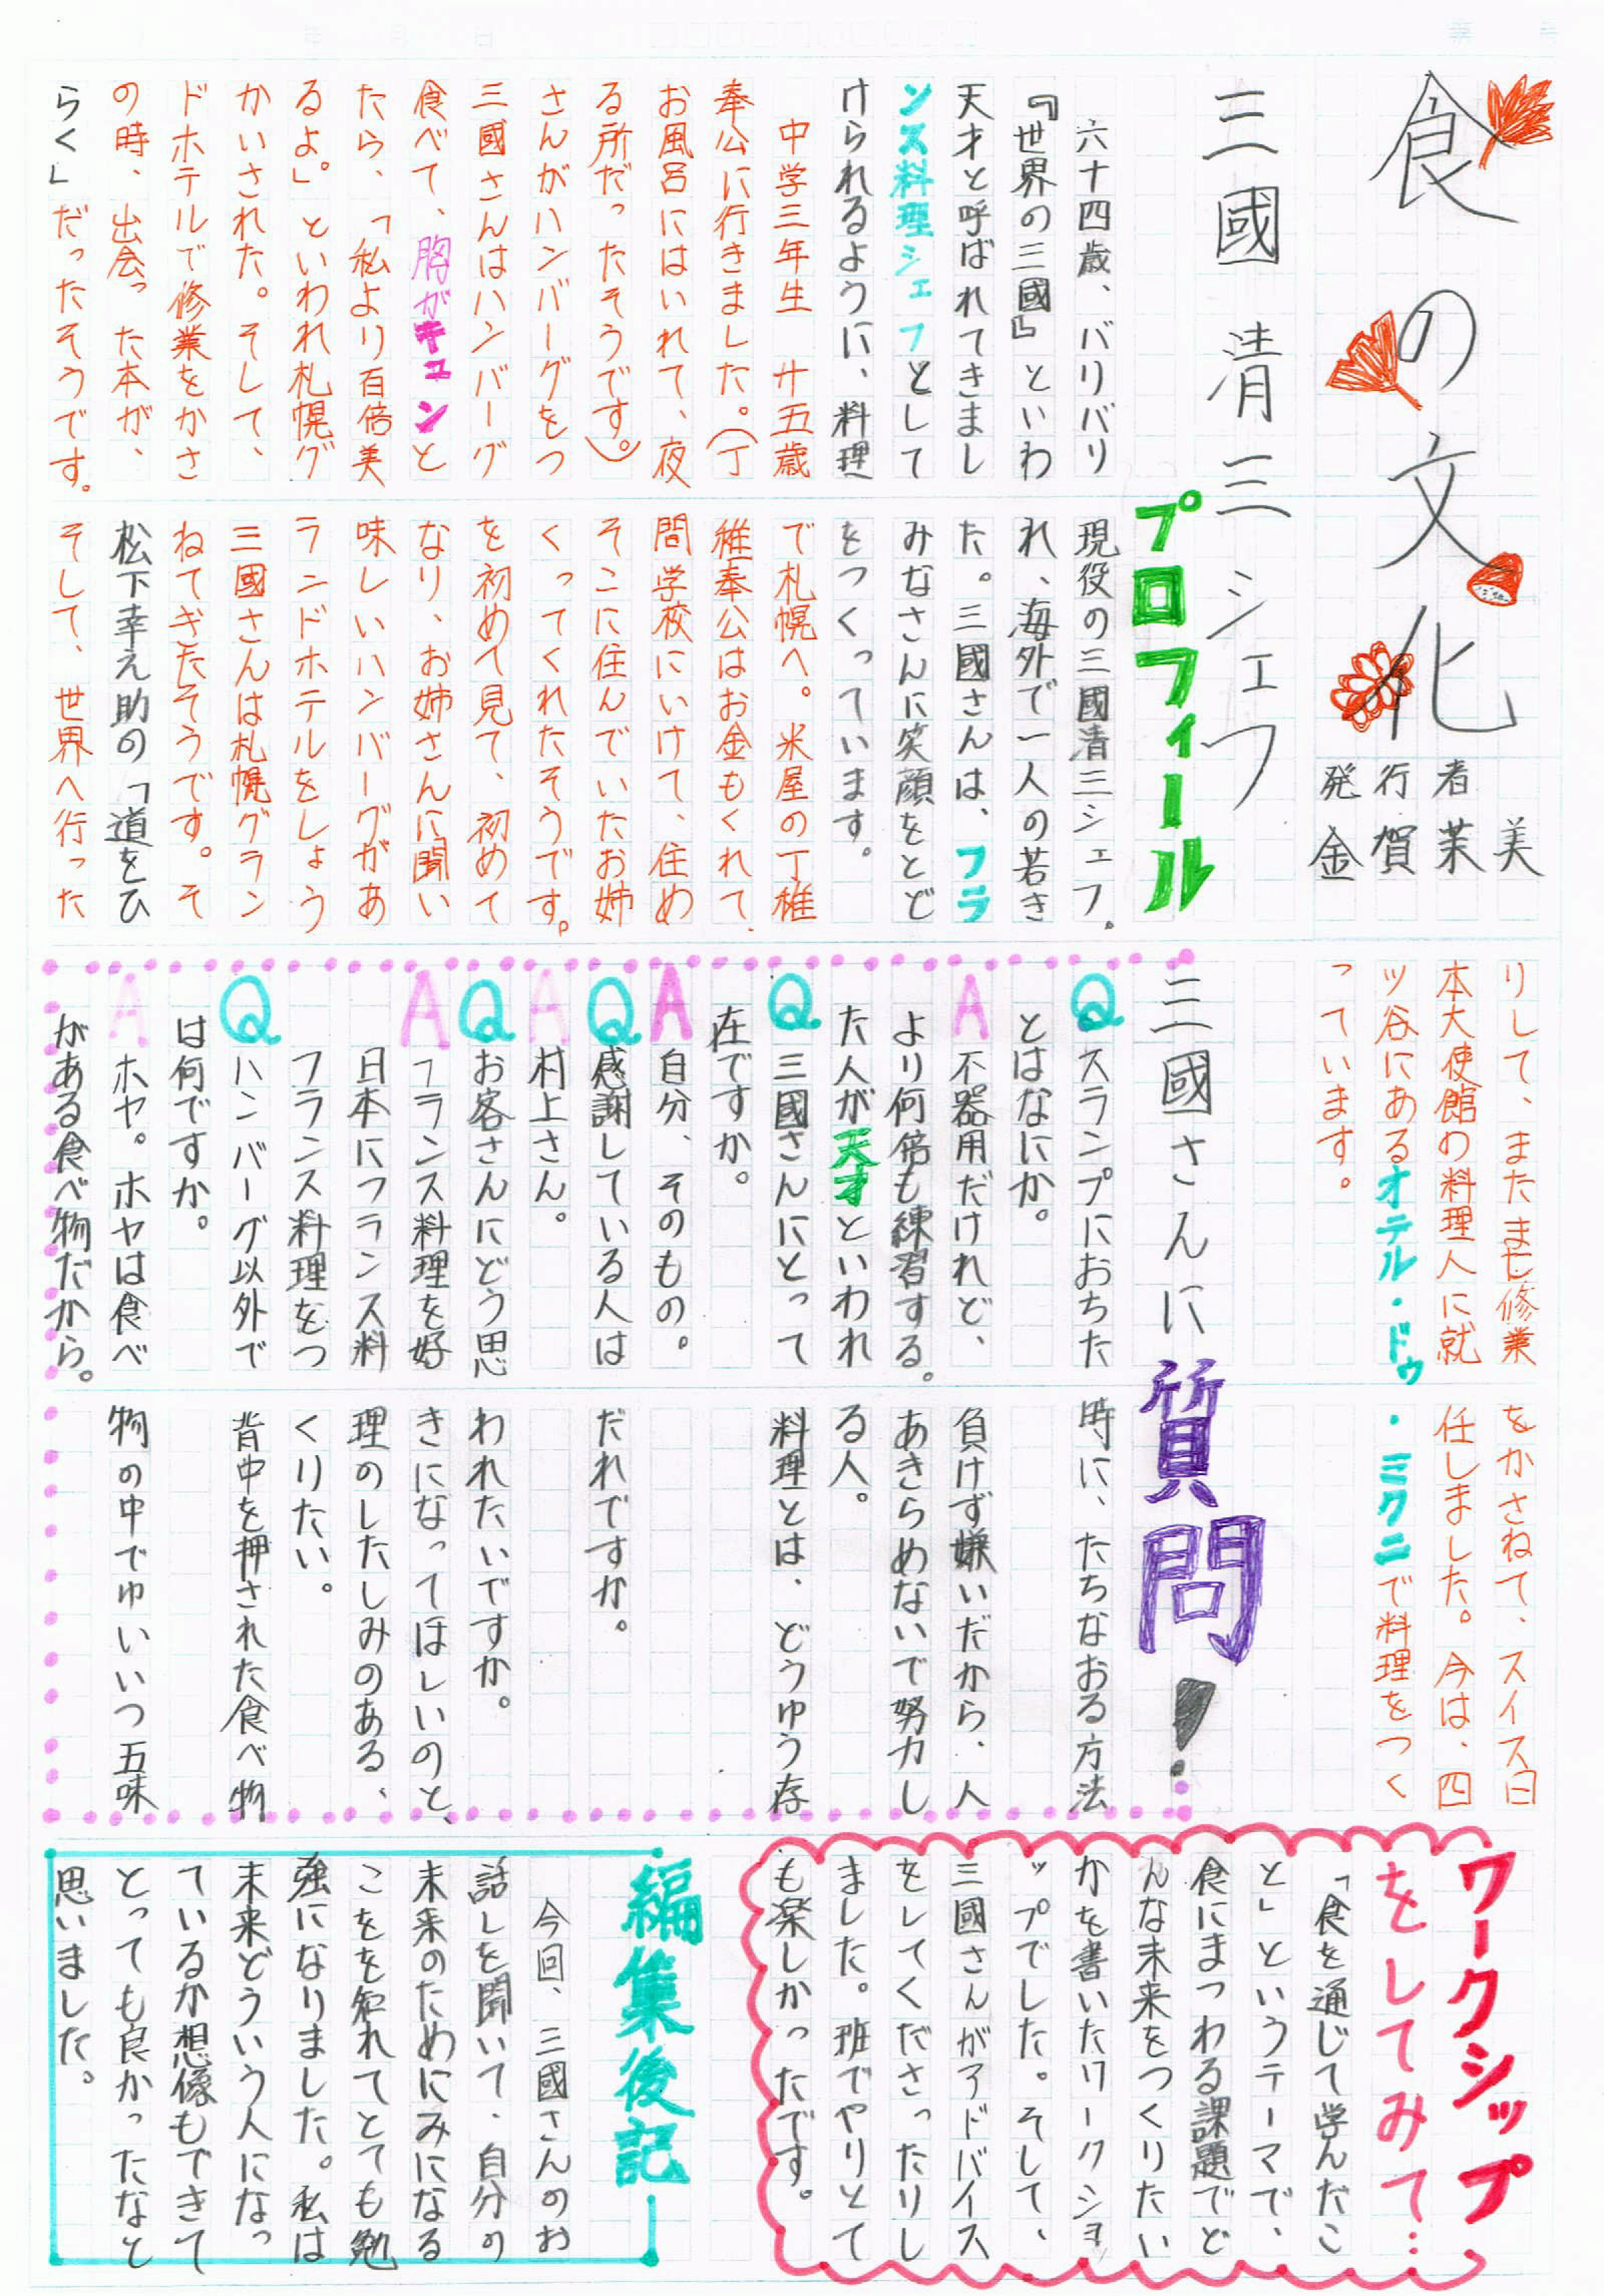 食の文化
発行者
金賀茉美
三國 清三シェフ
プロフィール
六十四歳、バリバリ現役の三國清三シェフ。
『世界の三國』といわれ、海外で一人の若き
天才と呼ばれてきました。三國さんは、フラ
ンス料理シェフとしてみなさんに笑顔をとど
けられるように、料理をつくっています。
中学三年生 十五歳で札幌へ。米屋の丁稚
奉公に行きました。(丁稚奉公はお金もくれて、
お風呂にはいれて、夜間学校にいけて、住め
る所だったそうです。)そこに住んでいたお姉
さんがハンバーグをつくってくれたそうです。
三國さんはハンバーグを初めて見て、初めて
食べて、胸がキュンとなり、お姉さんに聞い
たら、「私より百倍美味しいハンバーグがあ
るよ。」といわれ札幌グランドホテルをしょう
かいされた。そして、三國さんは札幌グラン
ドホテルで修業をかさねてきたそうです。そ
の時、出会った本が、松下幸え助の「道をひ
らく」だったそうです。そして、世界へ行った
りして、またまた修業をかさねて、スイス日
本大使館の料理人に就任しました。今は、四
ッ谷にあるオテル・ドゥ・ミクニで料理をつく
っています。
三國さんに質問!
Q スランプにおちた時に、たちなおる方法
とはなにか。
A 不器用だけれど、負けず嫌いだから、人
より何倍も練習する。あきらめないで努力し
た人が天才といわれる人。
Q 三國さんにとって料理とは、どうゆう存
在ですか。
A 自分、そのもの。
Q 感謝している人はだれですか。
A 村上さん。
Q お客さんにどう思われたいですか。
A フランス料理を好きになってほしいのと、
日本にフランス料理のしたしみのある、
フランス料理をつくりたい。
Q ハンバーグ以外で背中を押された食べ物
は何ですか。
A ホヤ。ホヤは食べ物の中でゆいいつ五味
がある食べ物だから。
ワークショップ
をしてみて…
「食を通じて学んだこ
と」というテーマで、
食にまつわる課題でど
んな未来をつくりたい
かを書いたワークショ
ップでした。そして、
三國さんがアドバイス
をしてくださったりし
ました。班でやりとて
も楽しかったです。
編集後記
今回、三國さんのお
話しを聞いて、自分の
未来のためにみになる
ことを知れてとても勉
強になりました。私は
未来どういう人になっ
ているか想像もできて
とっても良かったなと
思いました。